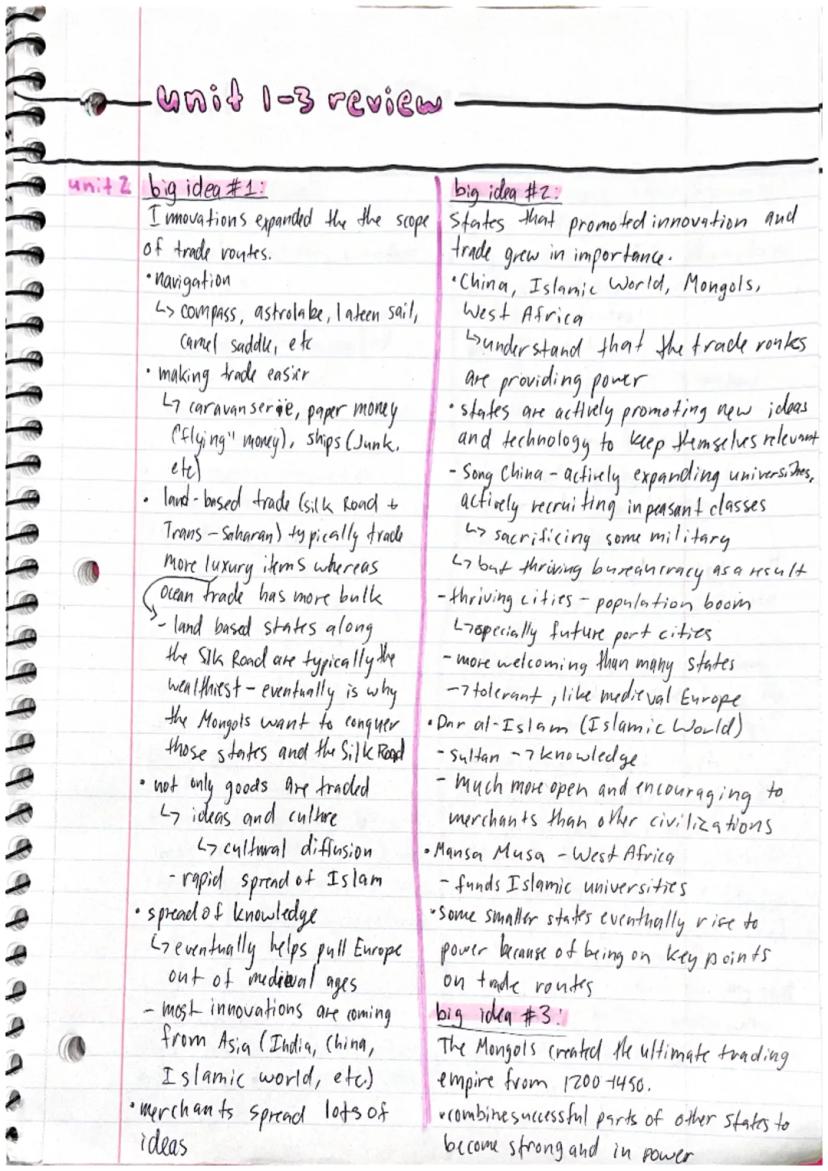 unit 1-3 review
unit 2
big idea #1:
Innovations expanded the the scope
of trade routes.
•navigation
↳ compass, astrolabe, lateen sail,
camel saddle, etc
• making trade easier
↳ caravanserie, paper money
("flying" money), ships (Junk,
etc)
• land-based trade (silk Road +
Trans-Saharan) typically trade
more luxury items whereas
ocean trade has more bulk
- land based states along
the Silk Road are typically the
wealthiest - eventually is why
the Mongols want to conquer
those states and the Silk Road
• not only goods are traded
↳ ideas and culture
↳ cultural diffusion
- rapid spread of Islam
• spread of knowledge
↳ eventually helps pull Europe
out of medieval ages
- most innovations are coming
from Asia (India, China,
Islamic world, etc)
•merchants spread lots of
ideas
big idea #2:
States that promoted innovation and
trade grew in importance.
•China, Islamic World, Mongols,
West Africa
↳understand that the trade routes
are providing power
•states are actively promoting new ideas
and technology to keep themselves relevant
- Song China - actively expanding universities,
actively recruiting in peasant classes
↳ sacrificing some military
↳ but thriving bureaucracy as a result
- thriving cities - population boom
↳especially future port cities
- more welcoming than many states
→ tolerant, like medieval Europe
•Dar al-Islam (Islamic World)
- sultan → knowledge
- much more open and encouraging to
merchants than other civilizations
•Mansa Musa - West Africa
- funds Islamic universities
•some smaller states eventually rise to
power because of being on key points
on trade routes
big idea #3:
The Mongols created the ultimate trading
empire from 1200-1450.
•combine successful parts of other states to
become strong and in power